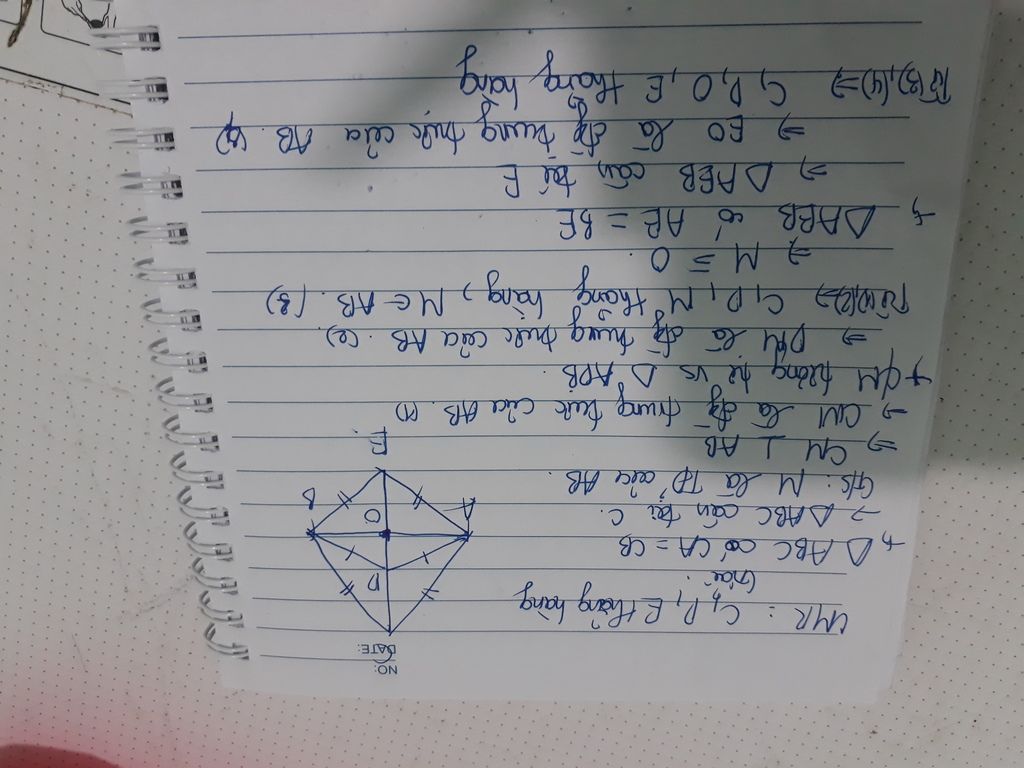 NO:
DATE:
CMR: C, D, E thẳng hàng
Giải
+, Δ ABC có CA = CB
→ Δ ABC cân tại C.
G/s: M là TĐ của AB.
⇒ CM ⊥ AB
→ CM là đg trung trực của AB. (1)
+ CM tương tự vs Δ ADB.
⇒ DM là đg trung trực của AB. (2)
Từ (1), (2) ⇒ C, D, M thẳng hàng, M ∈ AB. (3)
⇒ M ≡ O.
+, Δ AEB có AE = BE
⇒ Δ AEB cân tại E
⇒ EO là đg trung trực của AB. (4)
Từ (3), (4) ⇒ C, D, O, E thẳng hàng
C
D
A
O
B
E